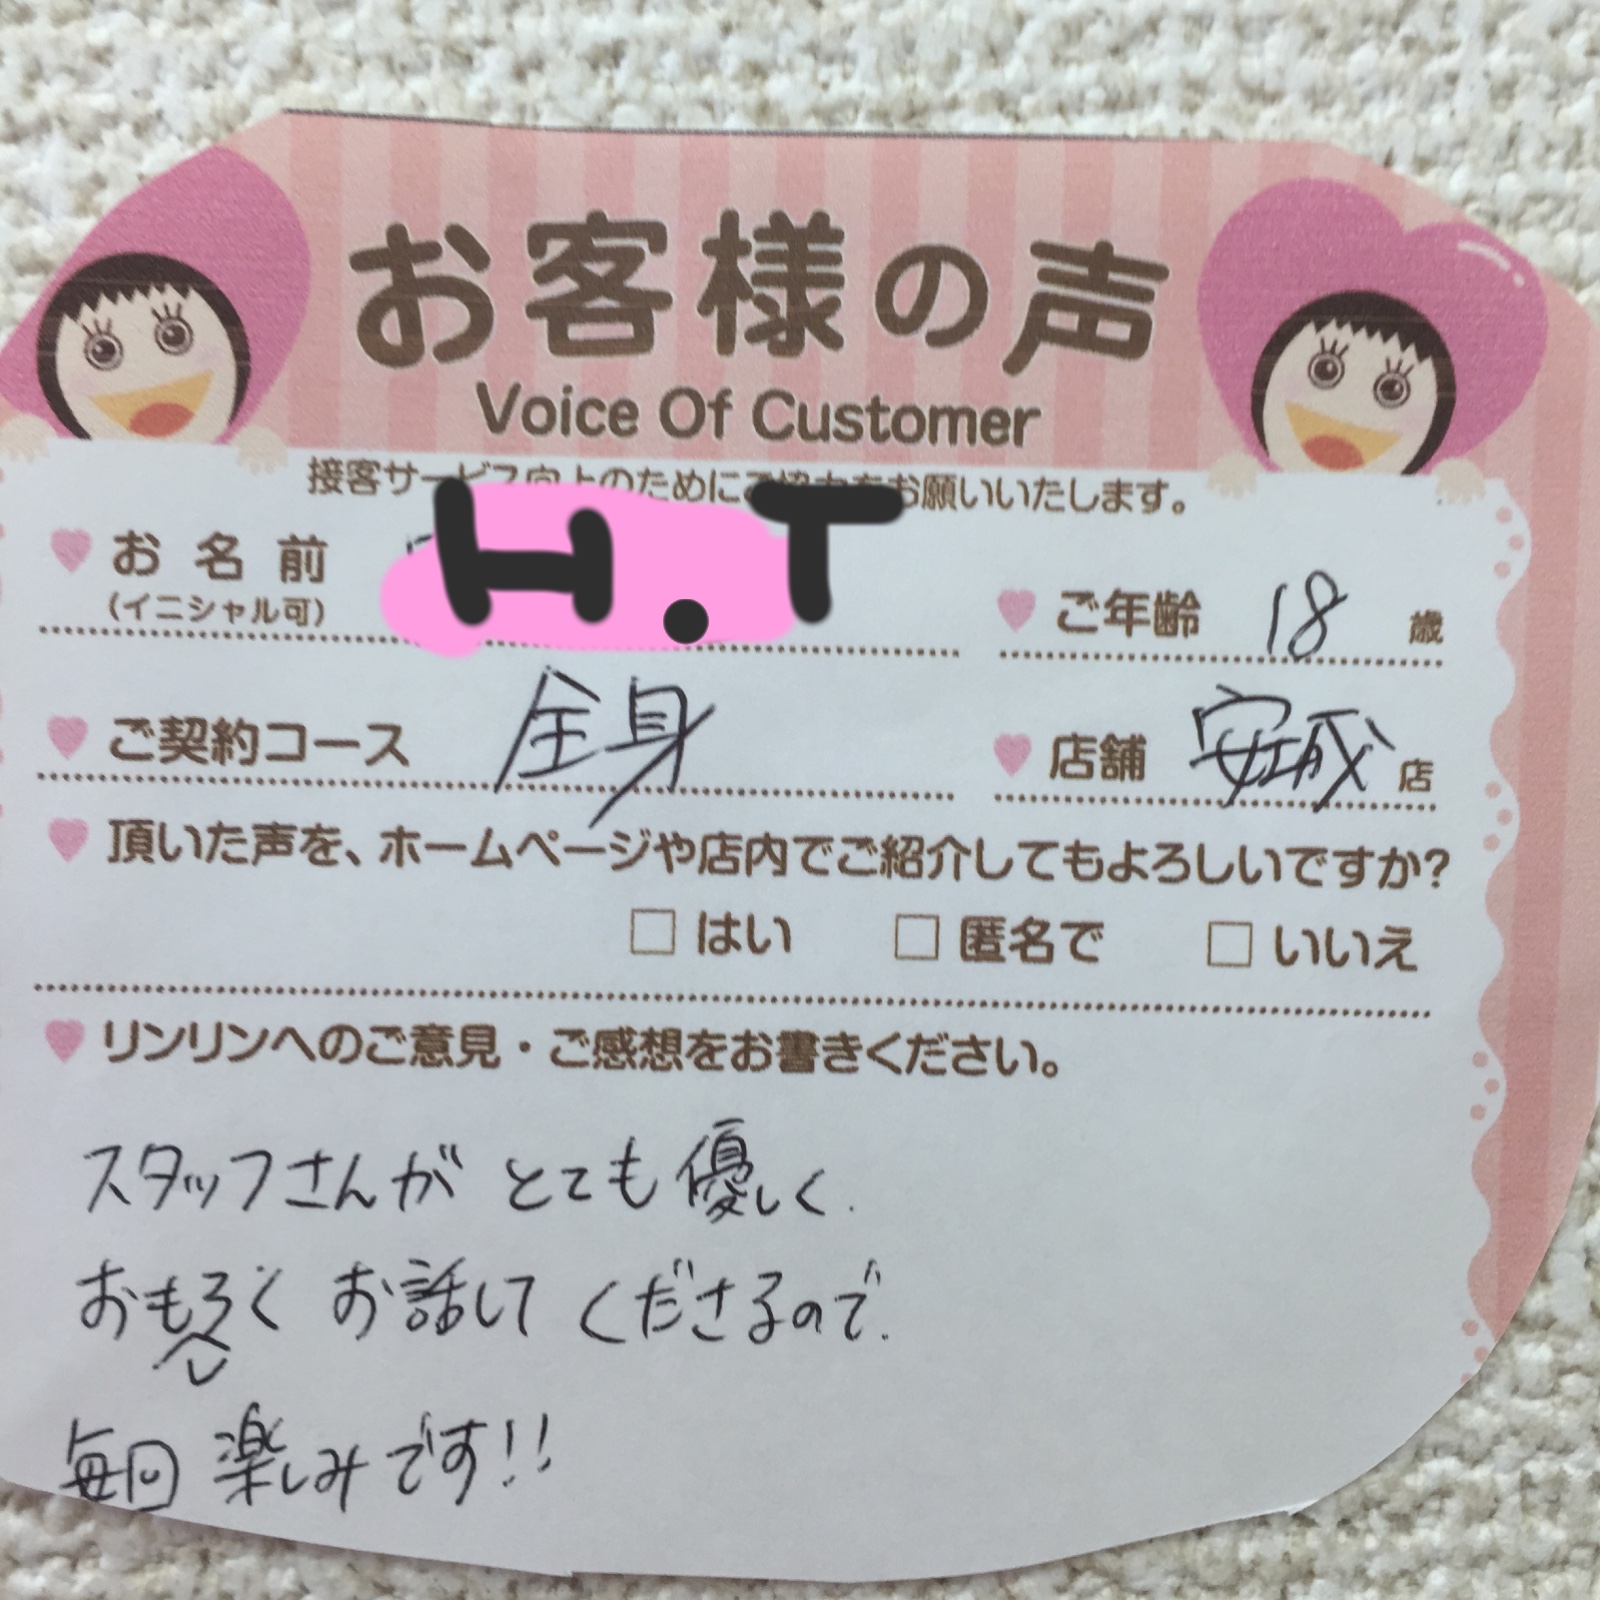 お客様の声
Voice Of Customer
接客サービス向上のためにご協力をお願いいたします。
お名前 H.T
(イニシャル可)
ご年齢 18 歳
ご契約コース 全身
店舗 安城 店
頂いた声を、ホームページや店内でご紹介してもよろしいですか?
□ はい □ 匿名で □ いいえ
リンリンへのご意見・ご感想をお書きください。
スタッフさんがとても優しく、
おもしろくお話してくださるので、
毎回楽しみです!!